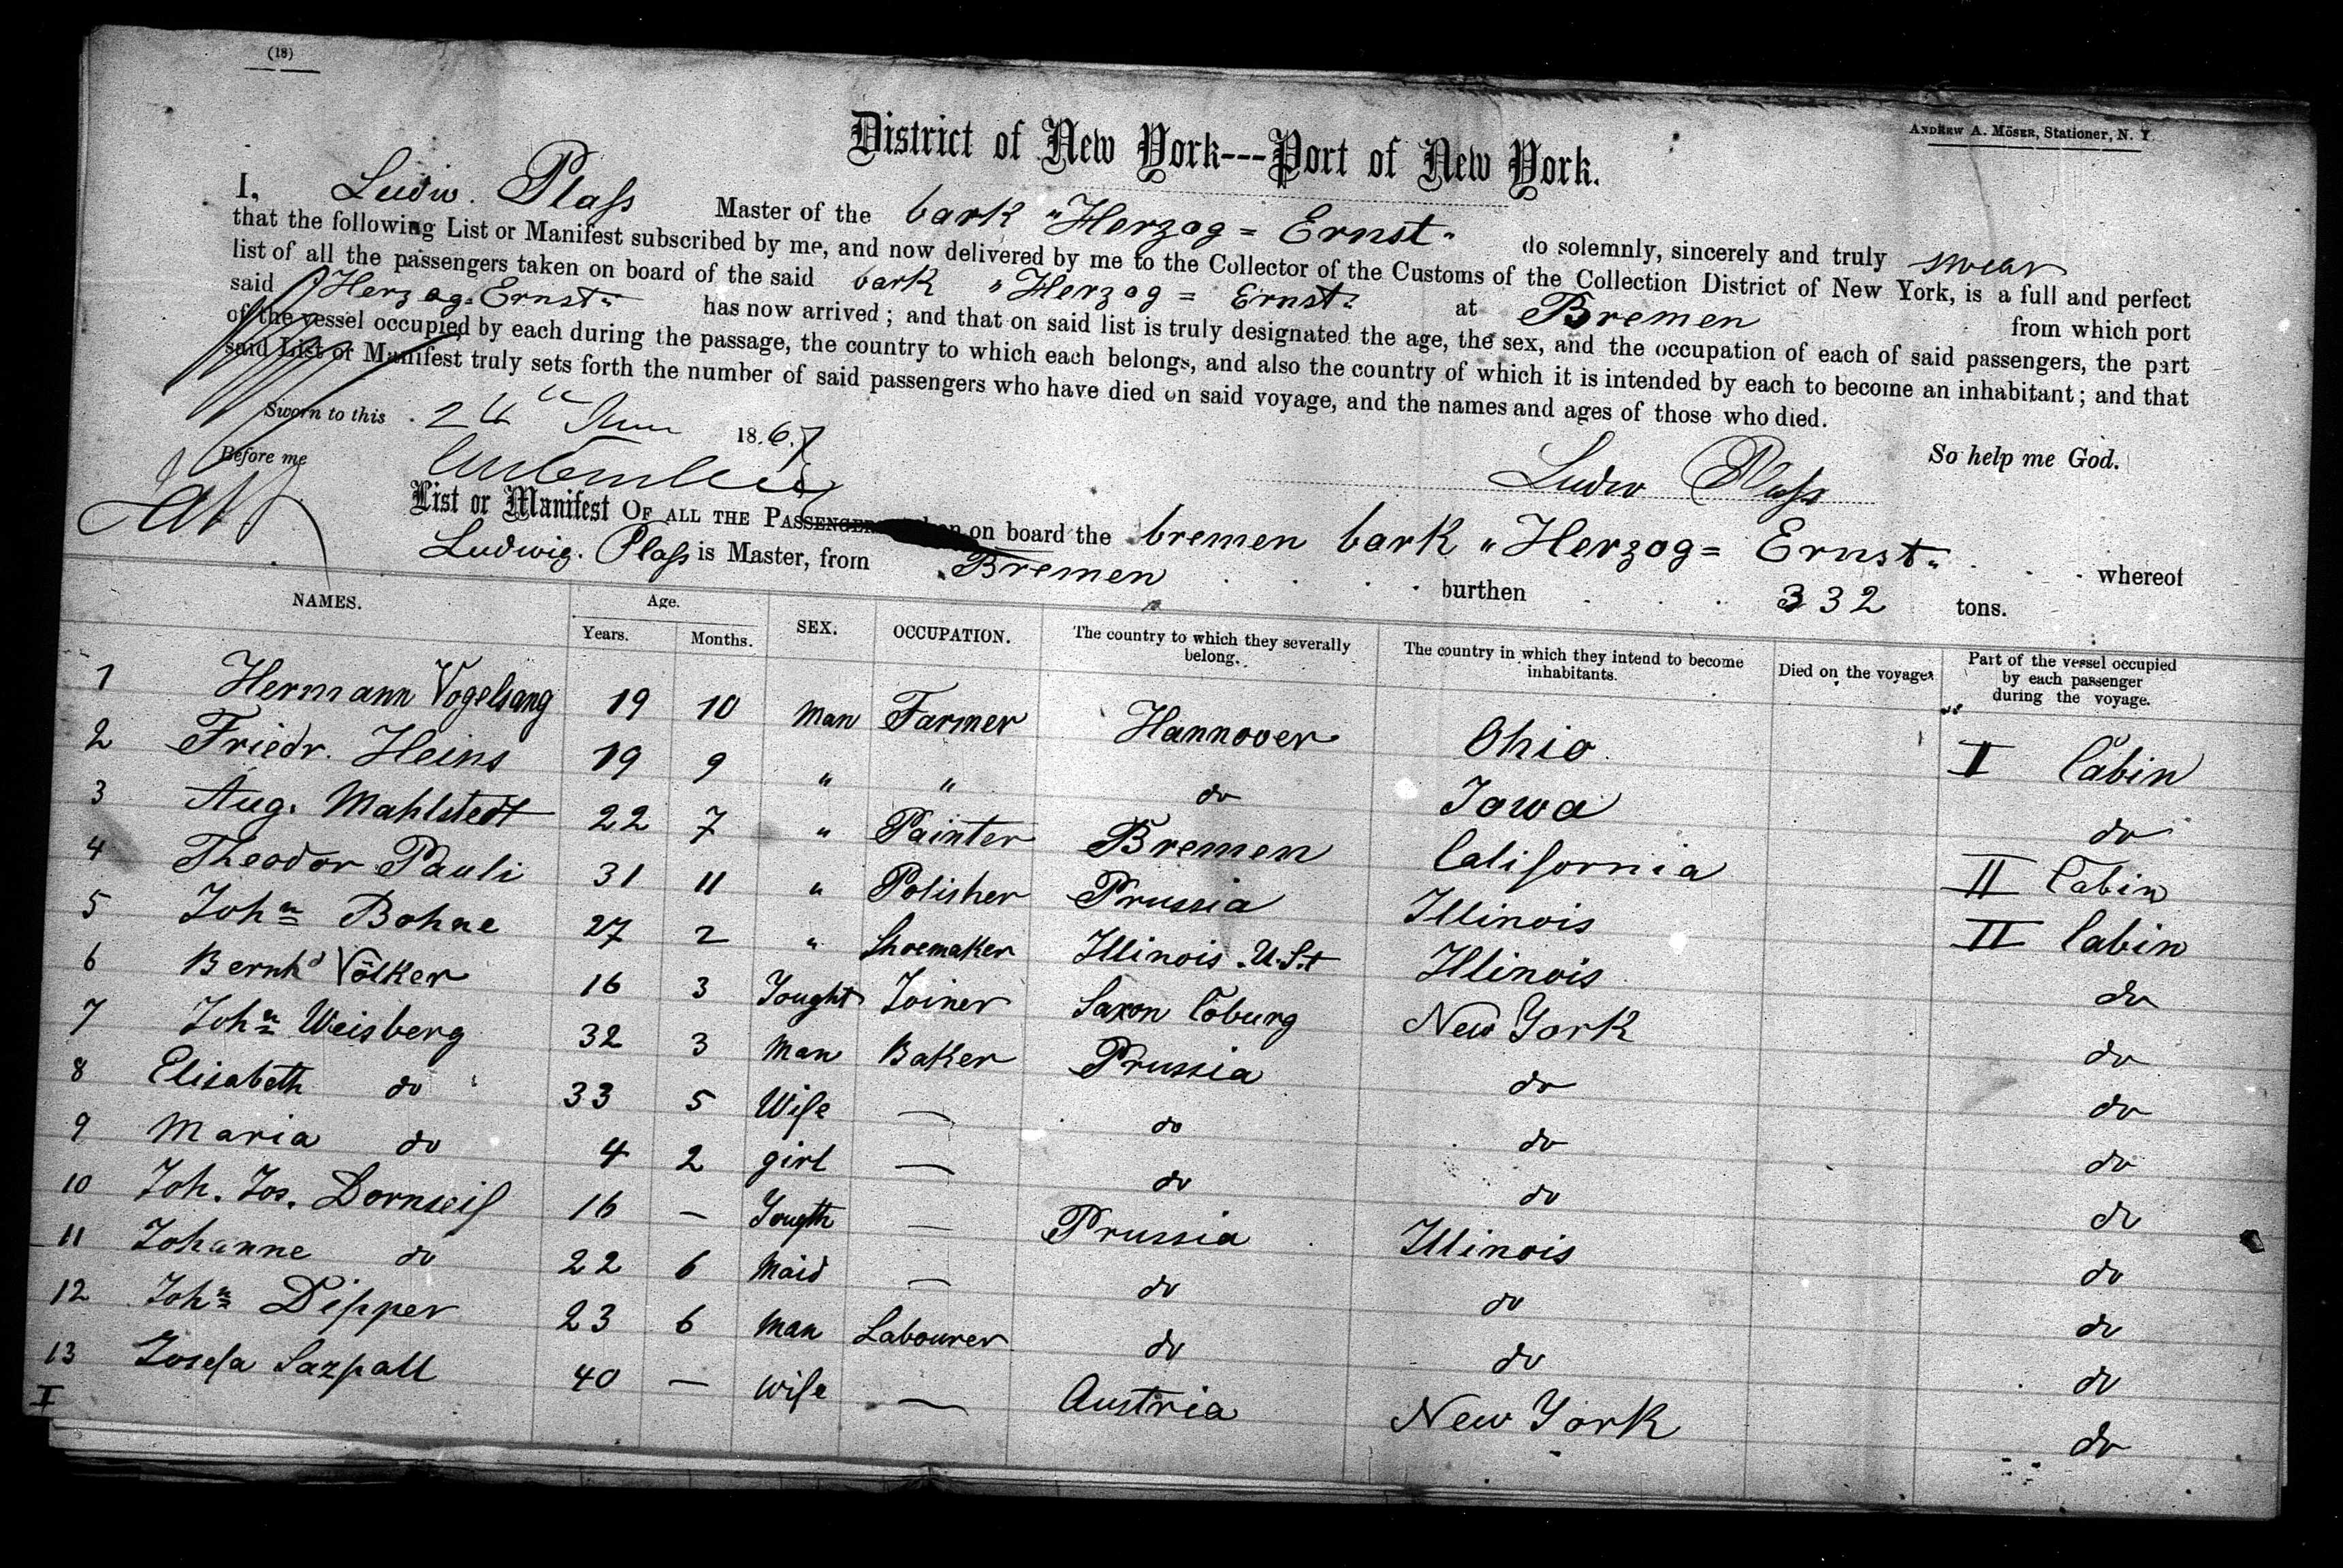 (18)
ANDREW A. MÖSER, Stationer, N. Y.
District of New York---Port of New York.
I, Ludw. Plass Master of the bark "Herzog = Ernst" do solemnly, sincerely and truly swear
that the following List or Manifest subscribed by me, and now delivered by me to the Collector of the Customs of the Collection District of New York, is a full and perfect
list of all the passengers taken on board of the said bark "Herzog = Ernst" at Bremen from which port
said "Herzog=Ernst" has now arrived; and that on said list is truly designated the age, the sex, and the occupation of each of said passengers, the part
of the vessel occupied by each during the passage, the country to which each belongs, and also the country of which it is intended by each to become an inhabitant; and that
said List or Manifest truly sets forth the number of said passengers who have died on said voyage, and the names and ages of those who died.
Sworn to this 1867 So help me God.
Before me Ludw Plass
List or Manifest OF ALL THE PASSENGERS taken on board the bremen bark "Herzog = Ernst" whereof
Ludwig. Plass is Master, from Bremen burthen 332 tons.
NAMES. Age. Years. Months. SEX. OCCUPATION. The country to which they severally belong. The country in which they intend to become inhabitants. Died on the voyage. Part of the vessel occupied by each passenger during the voyage.
1 Hermann Vogelsang 19 10 Man Farmer Hannover Ohio I Cabin
2 Friedr. Heins 19 9 " " do Iowa do
3 Aug. Mahlstedt 22 7 " Painter Bremen California II Cabin
4 Theodor Pauli 31 11 " Polisher Prussia Illinois II Cabin
5 John Bohne 27 2 " Shoemaker Illinois U.St Illinois do
6 Bernhd Völker 16 3 Yought Joiner Saxon Coburg New York do
7 John Weisberg 32 3 Man Baker Prussia do do
8 Elisabeth do 33 5 Wife — do do do
9 Maria do 4 2 girl — do do do
10 Joh. Jos. Dornseif 16 — Yougth — Prussia Illinois do
11 Johanne do 22 6 Maid — do do do
12 John Dipper 23 6 Man Labourer do do do
13 Josefa 40 — Wife — Austria New York do
I